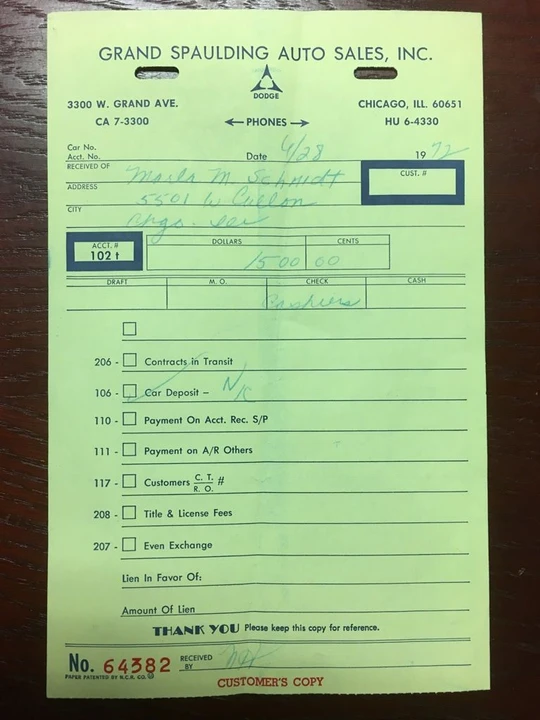 GRAND SPAULDING AUTO SALES, INC.
DODGE
3300 W. GRAND AVE. CHICAGO, ILL. 60651
CA 7-3300 ←PHONES→ HU 6-4330
Car No.
Acct. No. Date 4/28 1972
RECEIVED OF Marla M. Schmidt CUST. #
ADDRESS 5501 W Cullom
CITY Chgo.
ACCT. # DOLLARS CENTS
102 t 1500 00
DRAFT M. O. CHECK CASH
Cashiers
206 - Contracts in Transit
106 - Car Deposit – N/C
110 - Payment On Acct. Rec. S/P
111 - Payment on A/R Others
117 - Customers C. T. #
R. O.
208 - Title & License Fees
207 - Even Exchange
Lien In Favor Of:
Amount Of Lien
THANK YOU Please keep this copy for reference.
No. 64382 RECEIVED BY
PAPER PATENTED BY N.C.R. CO.
CUSTOMER'S COPY